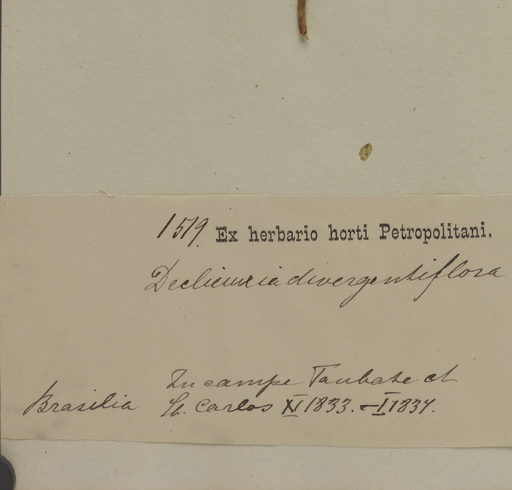 1519. Ex herbario horti Petropolitani.
Declieuxia divergentiflora
In campe Taubate et
Brasilia St. Carlos XI 1833. – I 1834.